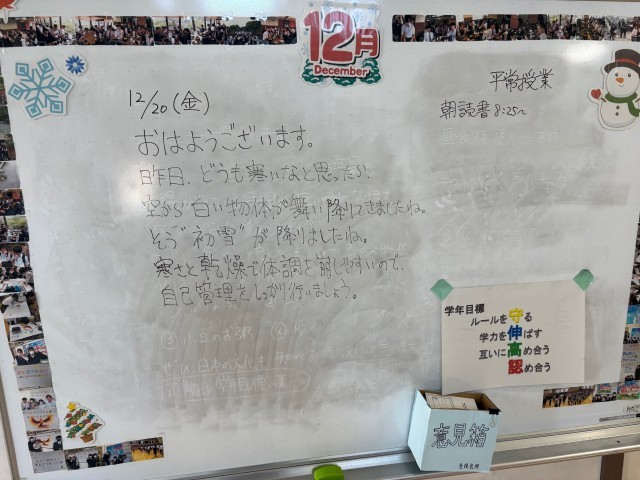 12月
December
平常授業
朝読書 8:25〜
12/20(金)
おはようございます。
昨日、どうも寒いなと思ったら、
空から白い物体が舞い降りてきましたね。
そう"初雪"が降りましたね。
寒さと乾燥で体調を崩しやすいので、
自己管理をしっかり行いましょう。
学年目標
ルールを守る
学力を伸ばす
互いに高め合う
認め合う
意見箱